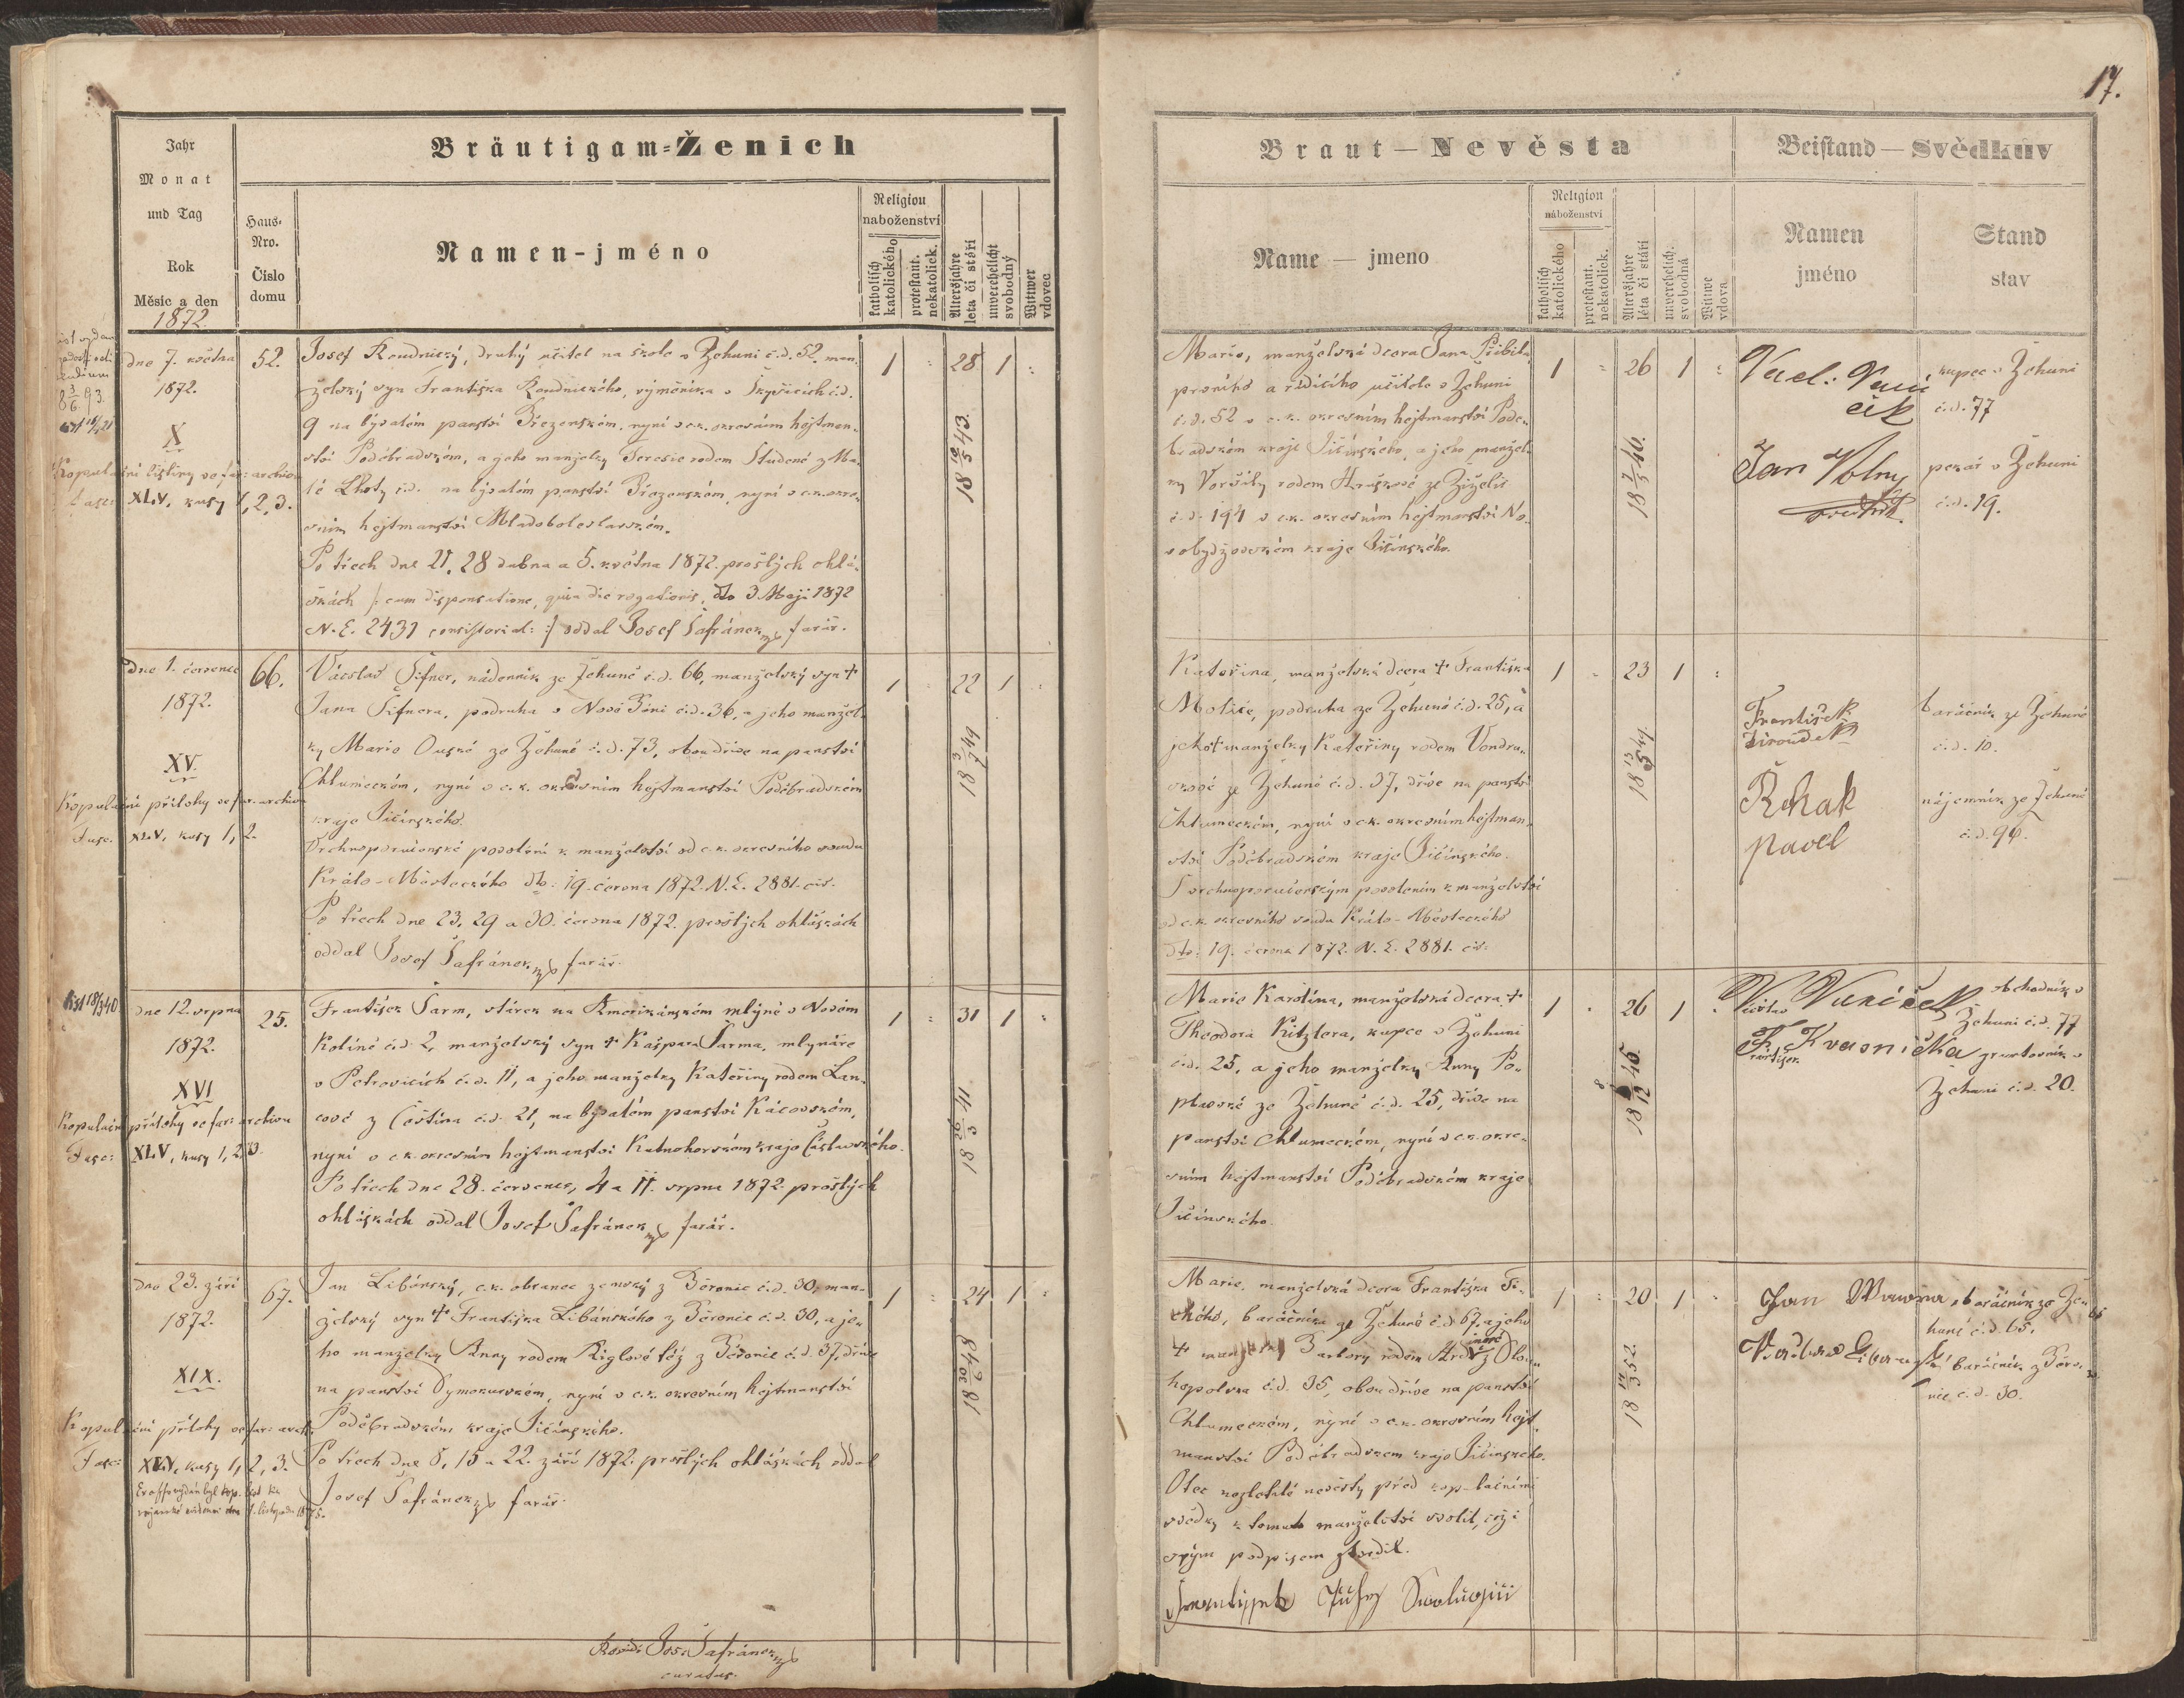 17.
Jahr
Monat
und Tag
Rok
Měsíc a den
1872.
Haus-
Nro.
Číslo
domu
Bräutigam=Ženich
Namen-jméno
Religion
naboženství
katholisch
katolického
protestant.
nekatolick.
Altersjahre
leta či stáří
unverehelicht
svobodný
Wittwer
vdovec
Braut — Nevěsta
Name — jmeno
Religion
náboženství
katholisch
katolického
protestant.
nekatolick.
Altersjahre
léta či stáří
unverehelich.
svobodná
Wittwe
vdova
Beistand — Svědkův
Namen
jméno
Stand
stav
dne 7. května
1872.
X
Kopulační listiny ve far: archivu
Fasc: XLV, kusy 1, 2, 3.
52.
Josef Roudnický, druhý učitel na škole v Žehuni č.d. 52, man-
želský syn Františka Roudnického, výměníka v č.d.
9 na bývalém panství Březenském, nyní v c.k. okresním hejtman-
ství Poděbradském, a jeho manželky Teresie rodem Studené z Ma-
lé Lhoty č.d. na bývalém panství Březenském, nyní v c.k. okre-
sním hejtmanství Mladoboleslavském.
Po třech dne 21, 28 dubna a 5. května 1872 prošlých ohlá-
škách /: cum dispensatione, quia die rogationis, dto 3 Maji 1872
N.E. 2431 consistorial: :/ oddal Josef Šafránek farář.
1 28 1
18 43.
Marie, manželská dcera Jana Přibila
prvního a řídícího učitele v Žehuni
č.d. 52 v c.k. okresním hejtmanství Podě-
bradském kraje Jičínského, a jeho manžel-
ky Voršily rodem ze Žiželic
č.d. 194 v c.k. okresním hejtmanství No-
vobydžovském kraje Jičínského.
1 26 1
18 7/5 46.
kupec v Žehuni
č.d. 77
Jan Volny
svědek.
pekař v Žehuni
č.d. 19.
Dne 1. července
1872.
XV.
Kopulační přílohy ve far. archivu
Fasc. XLV, kusy 1, 2.
66.
Václav Šifner, nádenník ze Žehuně č.d. 66, manželský syn +
Jana Šifnera, podruha v Nové Báni č.d. 36, a jeho manžel-
ky Marie Ouské ze Žehuně č.d. 73, obou dříve na panství
Chlumeckém, nyní v c.k. okresním hejtmanství Poděbradském
kraje Jičínského.
Vrchnoporučenské povolení k manželství od c.k. okresního soudu
Králo-Městeckého dto: 19. června 1872. N.E. 2881. civ.
Po třech dne 23, 29 a 30. června 1872. prošlých ohláškách
oddal Josef Šafránek farář.
1 22 1
18 3/7 49
Kateřina, manželská dcera + Františka
podruha ze Žehuně č.d. 25, a
jeho + manželky Kateřiny rodem Vondru-
škové ze Žehuně č.d. 37, dříve na panství
Chlumeckém, nyní v c.k. okresním hejtman-
ství Poděbradském kraje Jičínského.
S vrchnoporučenským povolením k manželství
od c.k. okresního soudu Králo-Městeckého
dto: 19. června 1872. N.E. 2881. civ.
1 23 1
18 13/5 49.
František
baráčník ze Žehuně
č.d. 10.
Řehak
pavel
nájemník ze Žehuně
č.d. 96.
dne 12. srpna
1872.
XVI
Kopulační přílohy ve far: archivu
Fasc: XLV, kusy 1, 2, 3.
25.
František Šarm, stárek na Amerikánském mlýně v Novém
Kolíně č.d. 2, manželský syn + Kašpara Šarma, mlynáře
v Petrovicích č.d. 11, a jeho manželky Kateřiny rodem Lan-
cové z Čestína č.d. 21, na bývalém panství Kácovském,
nyní v c.k. okresním hejtmanství Kutnohorském kraje Čáslavského.
Po třech dne 28. července, 4 a 11. srpna 1872 prošlých
ohláškách oddal Josef Šafránek farář.
1 31 1
18 26/3 41
Marie Karolína, manželská dcera +
Theodora Kitzlera, kupce v Žehuni
č.d. 25, a jeho manželky Anny Po-
plavské ze Žehuně č.d. 25, dříve na
panství Chlumeckém, nyní v c.k. okre-
sním hejtmanství Poděbradském kraje
Jičínského.
1 26 1
18 8/12 45.
obchodník v
Žehuni č.d. 77
František Kvasnička gruntovník v
Žehuni č.d. 20.
dne 23. září
1872.
XIX.
Kopulační přílohy ve far: arch.
Fasc: XLV, kusy 1, 2, 3.
67.
Jan Libánský, c.k. obranec zemský z Běronic č.d. 30, man-
želský syn + Františka Libánského z Běronic č.d. 30, a je-
ho manželky Anny rodem Riglové též z Běronic č.d. 37, dříve
na panství Dymokurském, nyní v c.k. okresním hejtmanství
Poděbradském kraje Jičínského.
Po třech dne 8, 15 a 22. září 1872 prošlých ohláškách oddal
Josef Šafránek farář.
1 24 1
18 48
Marie, manželská dcera Františka Ti-
chého, baráčníka ze Žehuně č.d. 67, a jeho
+ manželky Barbory rodem z Olou-
č.d. 35, obou dříve na panství
Chlumeckém, nyní v c.k. okresním hejt-
manství Poděbradském kraje Jičínského.
Otec nezletilé nevěsty před kopulačními
svědky k tomuto manželství svolil, což i
svým podpisem stvrdil.
František Tichy Svolujicí
1 20 1
18 14/3 52.
Jan Wawra
baráčník ze Že-
huně č.d. 65.
baráčník z Běro-
nic č.d. 30.
Josef Šafránek
curatus.